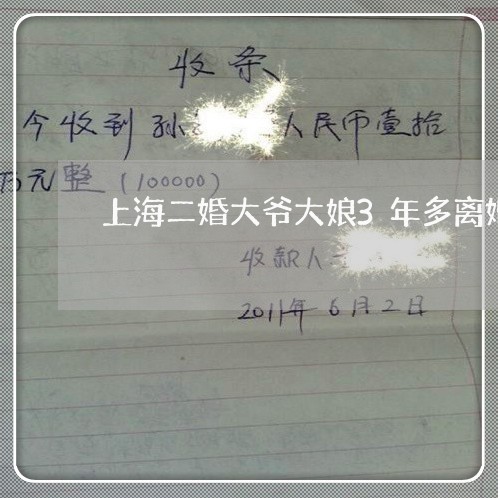 收条
今收到孙 人民币壹拾
万元整(100000)
上海二婚大爷大娘3年多离婚
收款人
2011年6月2日